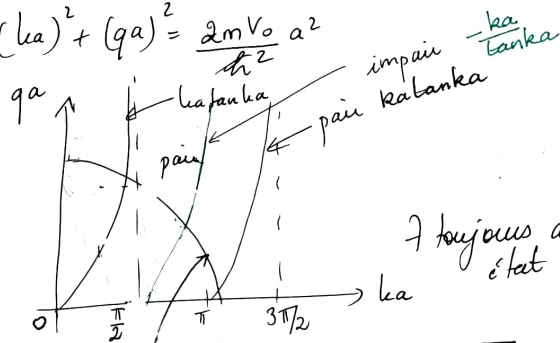 (ka)² + (qa)² = 2mV₀/ħ² a²
impair -ka/tanka
qa
katanka
pair katanka
pair
∃ toujours
état
0 π/2 π 3π/2 ka